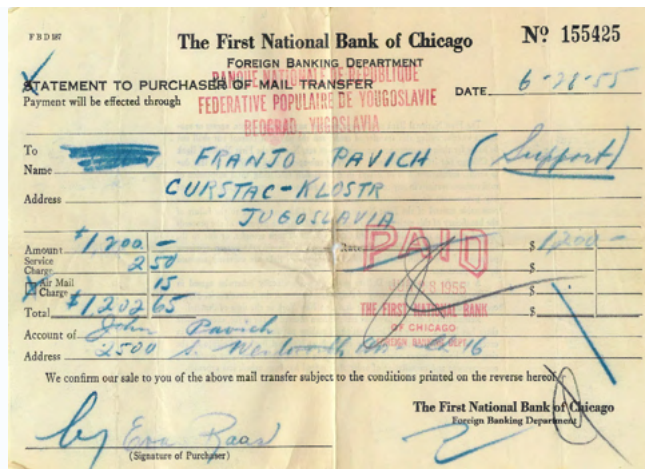 FBD 187
The First National Bank of Chicago
Nº 155425
FOREIGN BANKING DEPARTMENT
STATEMENT TO PURCHASER OF MAIL TRANSFER
DATE 6-28-55
Payment will be effected through
BANQUE NATIONALE DE REPUBLIQUE
FEDERATIVE POPULAIRE DE YOUGOSLAVIE
BEOGRAD, YUGOSLAVIA
To
Name FRANJO PAVICH (Support)
Address CURSTAC-KLOSTR
JUGOSLAVIA
Amount $1,200 – Rate $ 1,200 –
Service Charge 2 50 $
Air Mail Charge 15 $
Total $1,202 65 $
PAID
1955
THE FIRST NATIONAL BANK
OF CHICAGO
FOREIGN BANKING DEPT
Account of John Pavich
Address 2500 S. Wentworth 16
We confirm our sale to you of the above mail transfer subject to the conditions printed on the reverse hereof.
The First National Bank of Chicago
Foreign Banking Department
by Eva Raas
(Signature of Purchaser)